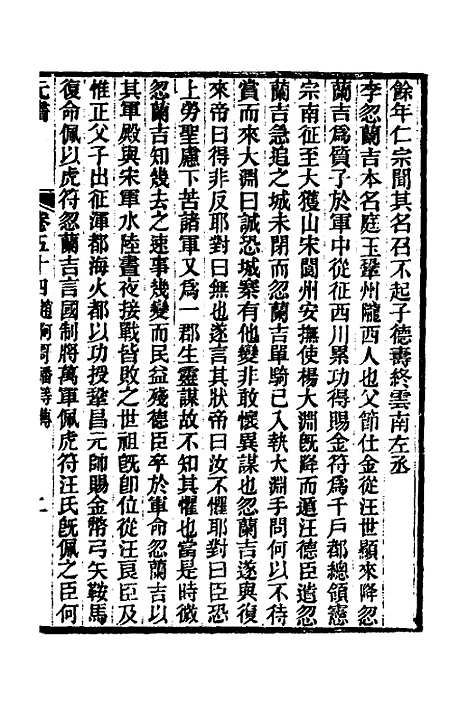 餘年仁宗聞其名召不起子德壽終雲南左丞
李忽蘭吉本名庭玉鞏州隴西人也父節仕金從汪世顯來降忽
蘭吉爲質子於軍中從征西川累功得賜金符爲千戶都總領憲
宗南征至大獲山宋閬州安撫使楊大淵旣降而遁汪德臣遣忽
蘭吉急追之城未閉而忽蘭吉單騎已入執大淵手問何以不待
賞而來大淵曰誠恐城寨有他變非敢懷異謀也忽蘭吉遂與復
來帝曰得非反耶對曰無也遂言其狀帝曰汝不懼耶對曰臣恐
上勞聖慮下苦諸軍又爲一郡生靈謀故不知其懼也當是時微
忽蘭吉知幾去之速事幾變而民益殘德臣卒於軍命忽蘭吉以
其軍殿與宋軍水陸晝夜接戰皆敗之世祖旣卽位從汪良臣及
惟正父子出征渾都海火都以功授鞏昌元帥賜金幣弓矢鞍馬
復命佩以虎符忽蘭吉言國制將萬軍佩虎符汪氏旣佩之臣何
元書 卷五十四 二